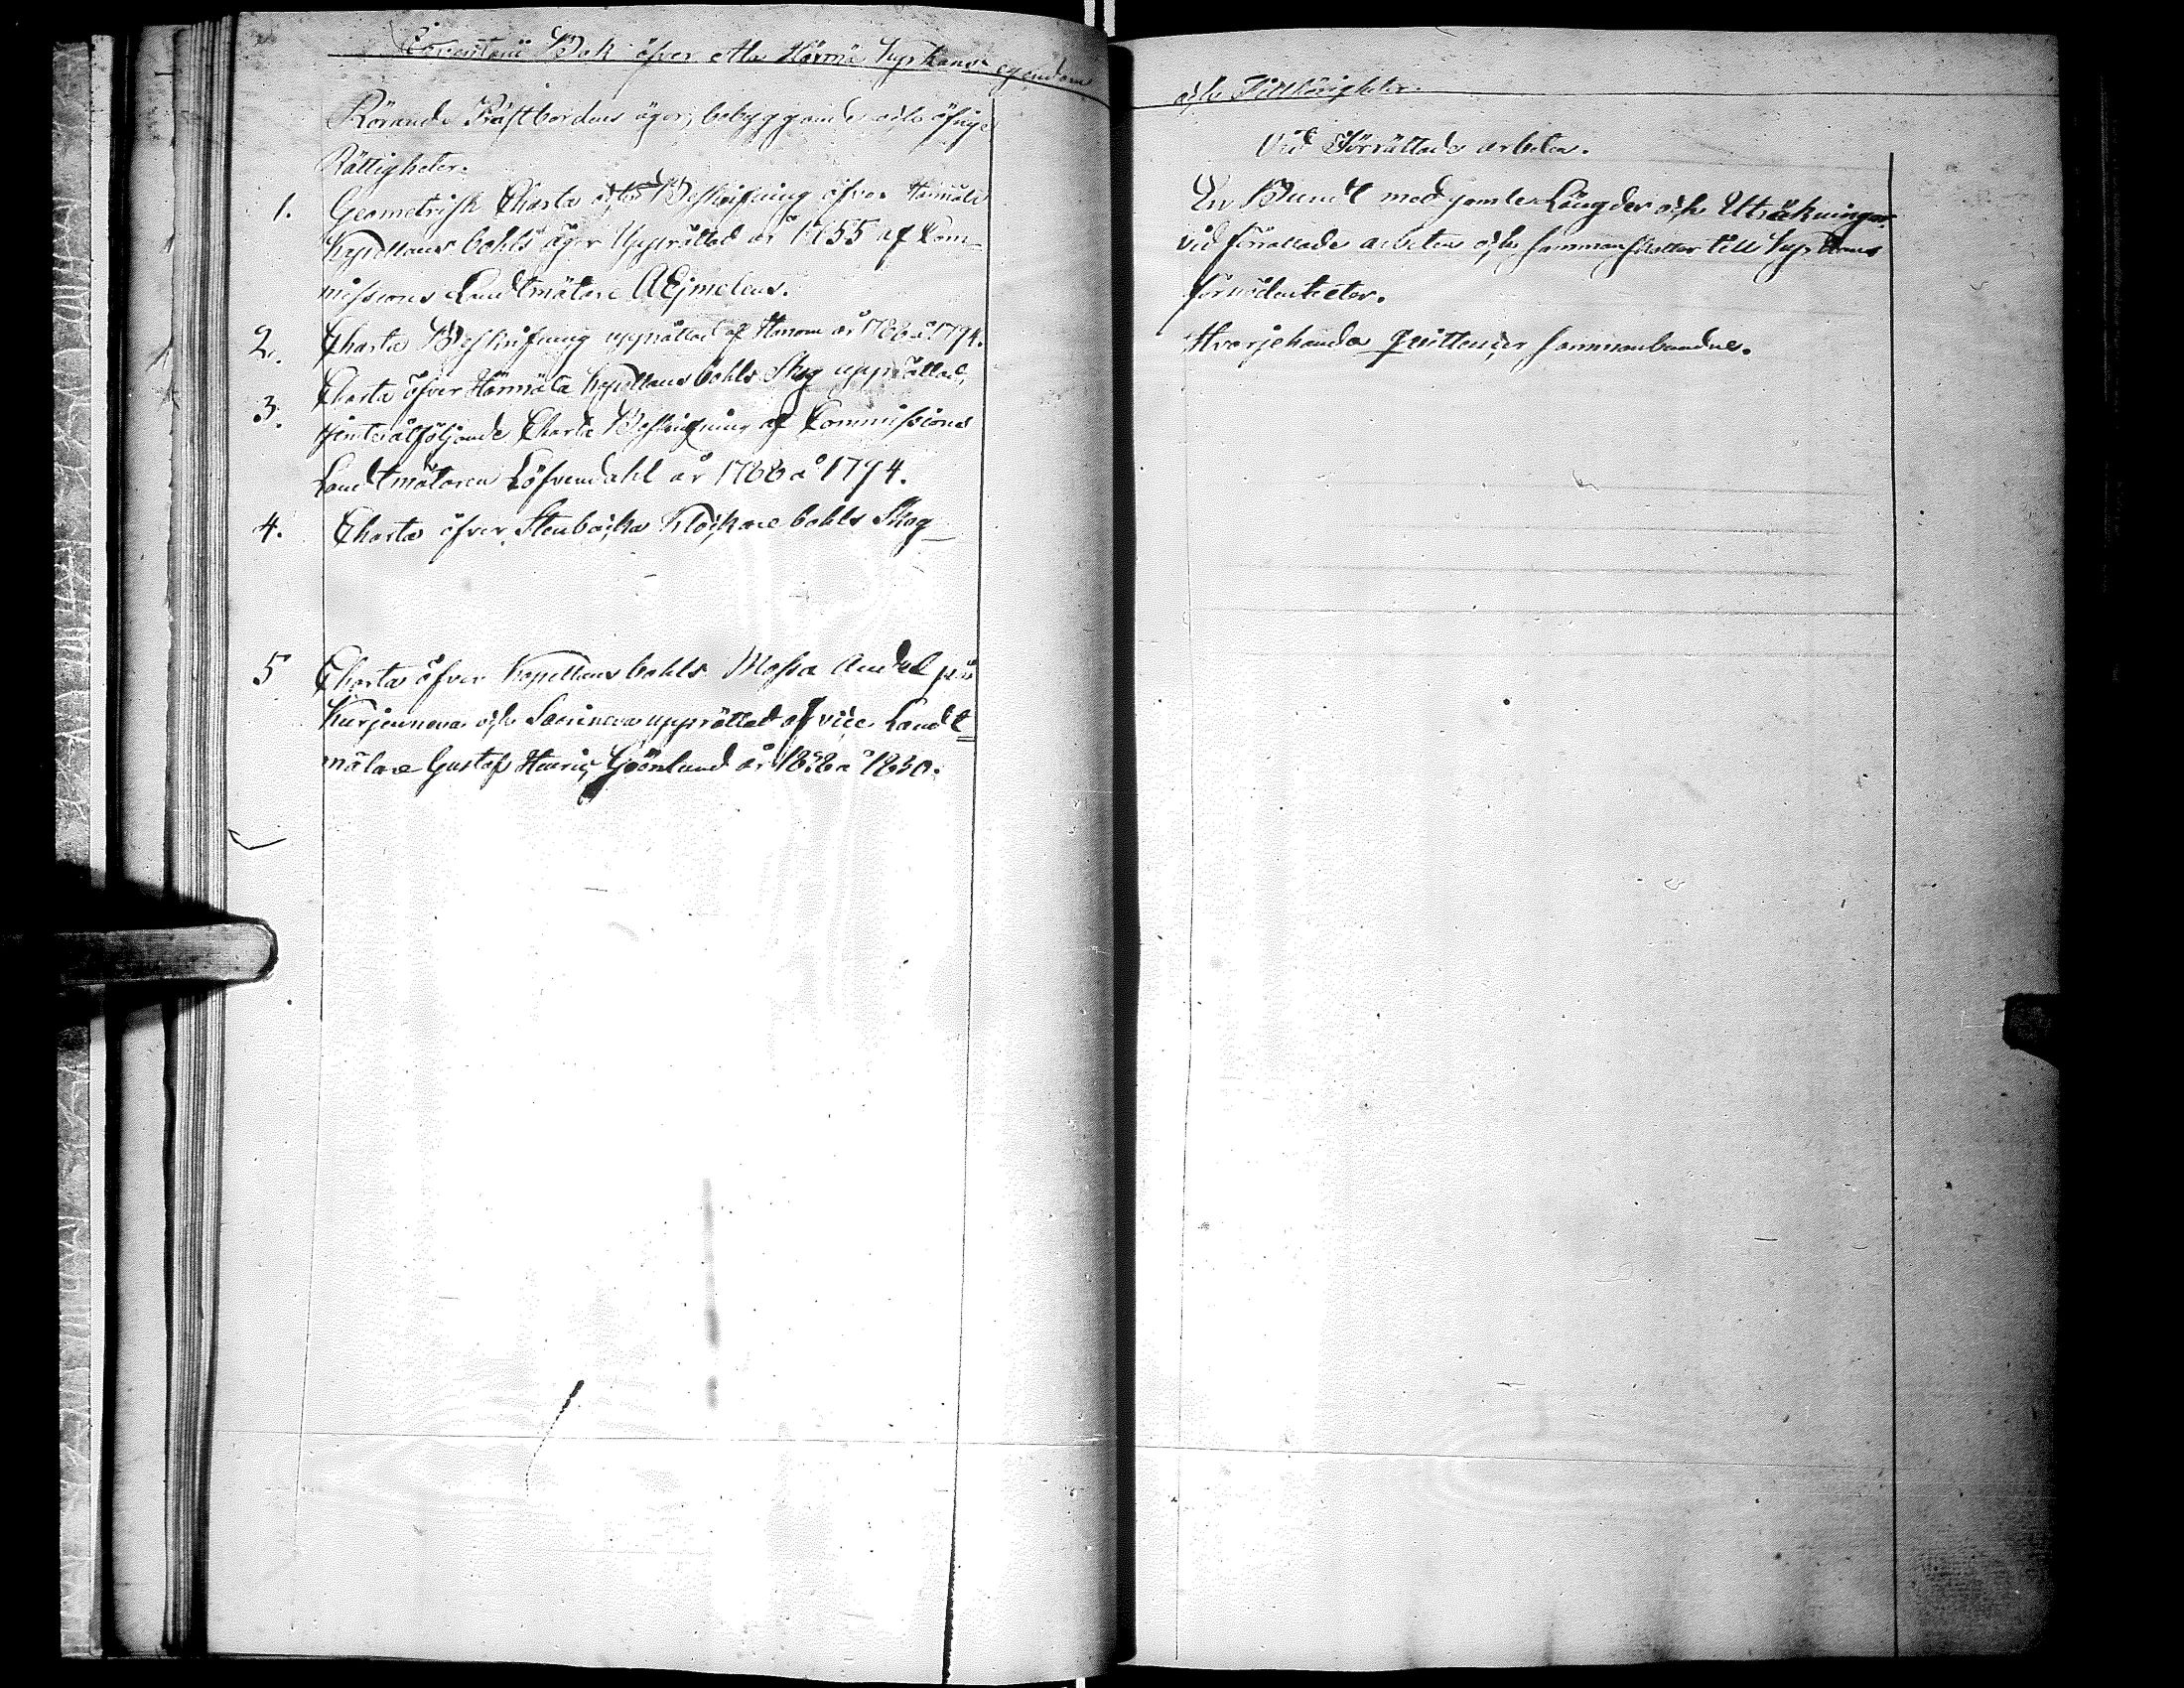 Inventarii Bok öfver Alla Härmä Kyrkans egendom
Rörande Prästbordens ägor, bebyggande och öfrige
Rättigheter.
1. Geometrisk Charta och Beskrifning öfver Härmälä
Kapellans bohls ägor Upprättad år 1755 af Com-
missions Landtmätare A Ejmeleus.
2. Charta Beskrifning upprättad af Honom år 1788 à 1794.
3. Charta öfver Härmälä Kapellans bohls Skog upprättad,
jemte åtföljande Charta Beskrifning af Commissions
Landtmätaren Löfvendahl år 1788 à 1794.
4. Charta öfver Stenbacka Klockare bohls Skog
5 Charta öfver Kapellans bohls Mossa Andel på
Kurjenneva och Saarineva upprättad af vice Landt
mätare Gustaf Henric Grönlund år 1828 à 1830.
och Tillhörigheter.
Vid Förrättade arbeten.
En Bundt med gamle Längder och Uträkningar
vid förrättade arbeten och sammanskotter till Kyrkans
förnödenheter.
Hvarjehanda quittencer sammanbundne.